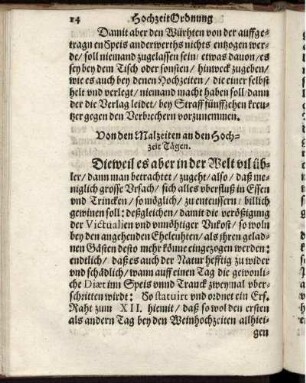 14 HochzeitOrdnung
Damit aber den Würhten von der auffge-
tragn en Speis anderwerths nichts entzogen wer-
de/ soll niemand zugelassen sein/ etwas dauon/ es
sey bey dem Tisch oder sonsten/ hinweck zugeben/
wie es auch bey denen Hochzeiten/ die einer selbst
helt und verlegt/ niemand macht haben soll/ dann
der die Verlag leidet/ bey Straff fünffzehen kreu-
tzer gegen den Verbrechern vorzunemmen.
Von den Malzeiten an den Hoch-
zeit Tägen.
Dieweil es aber in der Welt vil üb-
ler/ dann man betrachtet/ zugeht/ also/ daß me-
niglich grosse Vrsach/ sich alles vberfluß in Essen
und Trincken/ so möglich/ zu enteussern/ billich
gewinen soll: deßgleichen/ damit die verösigung
der Victualien und unnöhtiger Vnkost/ so woln
bey den angehenden Eheleuhten/ als jhren gelad-
nen Gästen desto mehr könne eingezogen werden:
endlich/ daß es auch der Natur hefftig zu wider
und schädlich/ wann auff einen Tag die gewonli-
che Diæt inn Speis unnd Tranck zweymal vber-
schritten wirdt: So statuirt und ordnet ein Ers.
Raht zum XII. hiemit/ daß so wol den ersten
als andern Tag bey den Weinhochzeiten allhie-
gen